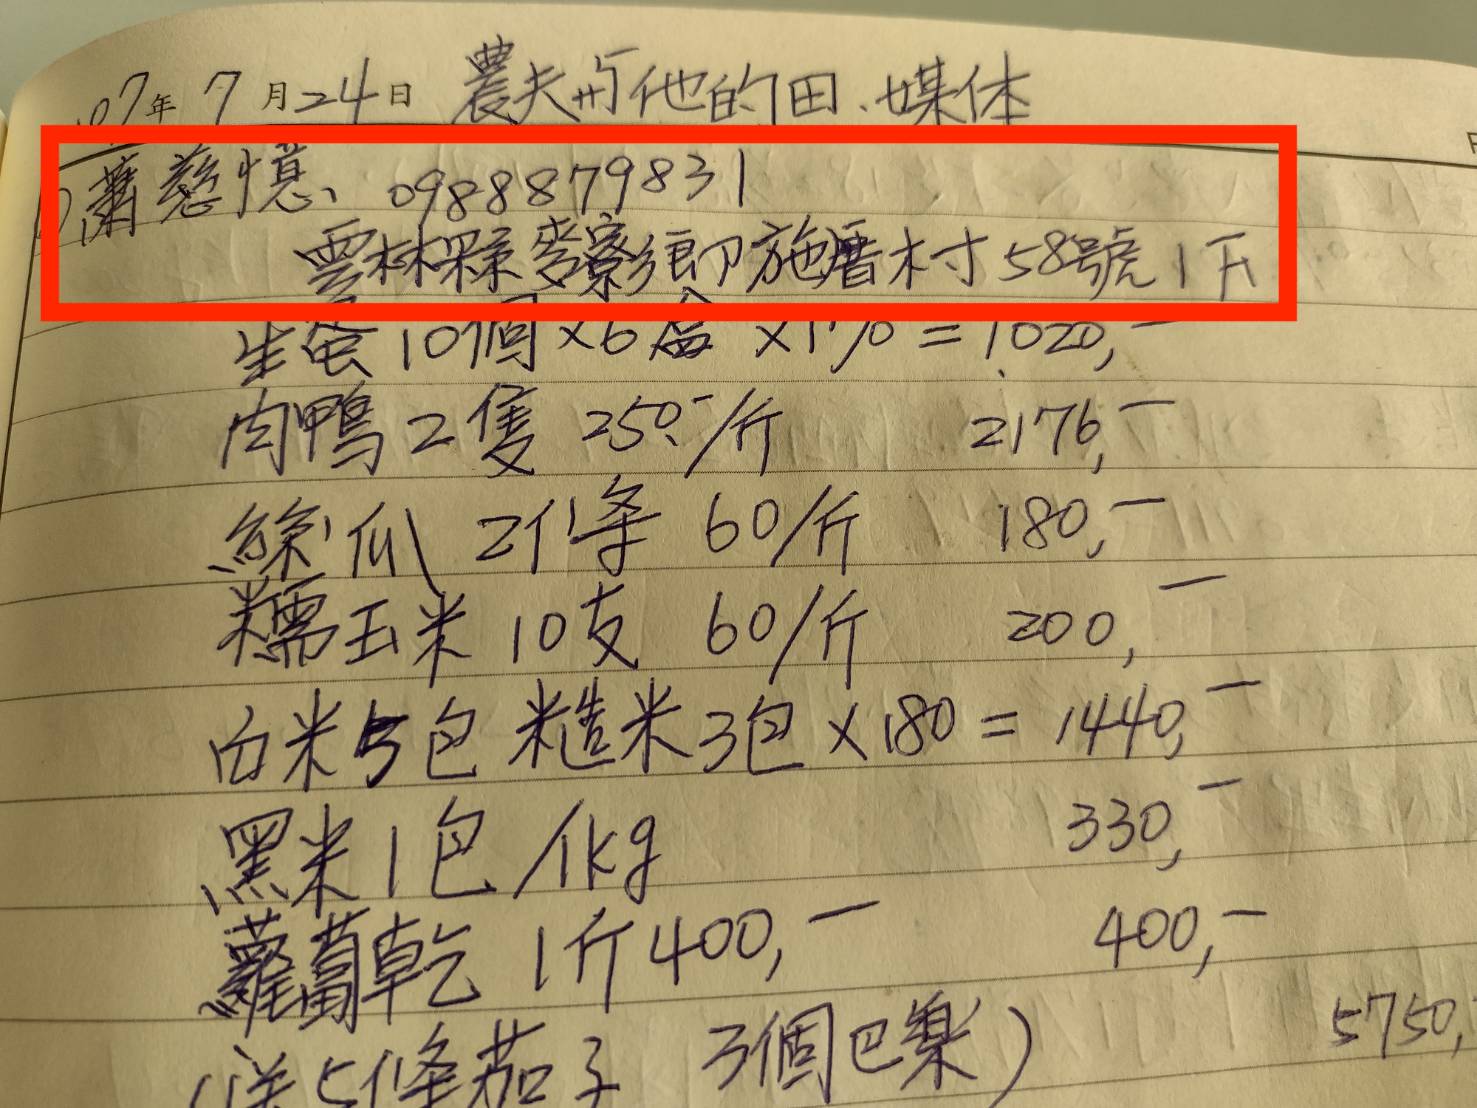 107年 7月24日 農夫与他的田、媒体
蕭慈憶、0988879831
雲林縣麥寮鄉施厝村58號1F
生蛋10個×6盒 ×170=1020,-
肉鴨2隻 250.-/斤 2176,-
絲瓜 2條 60/斤 180,-
糯玉米 10支 60/斤 200,-
白米5包 糙米3包×180=1440,-
黑米1包/1kg 330,-
蘿蔔乾 1斤400,- 400,-
(送5條茄子 3個巴樂) 5750,